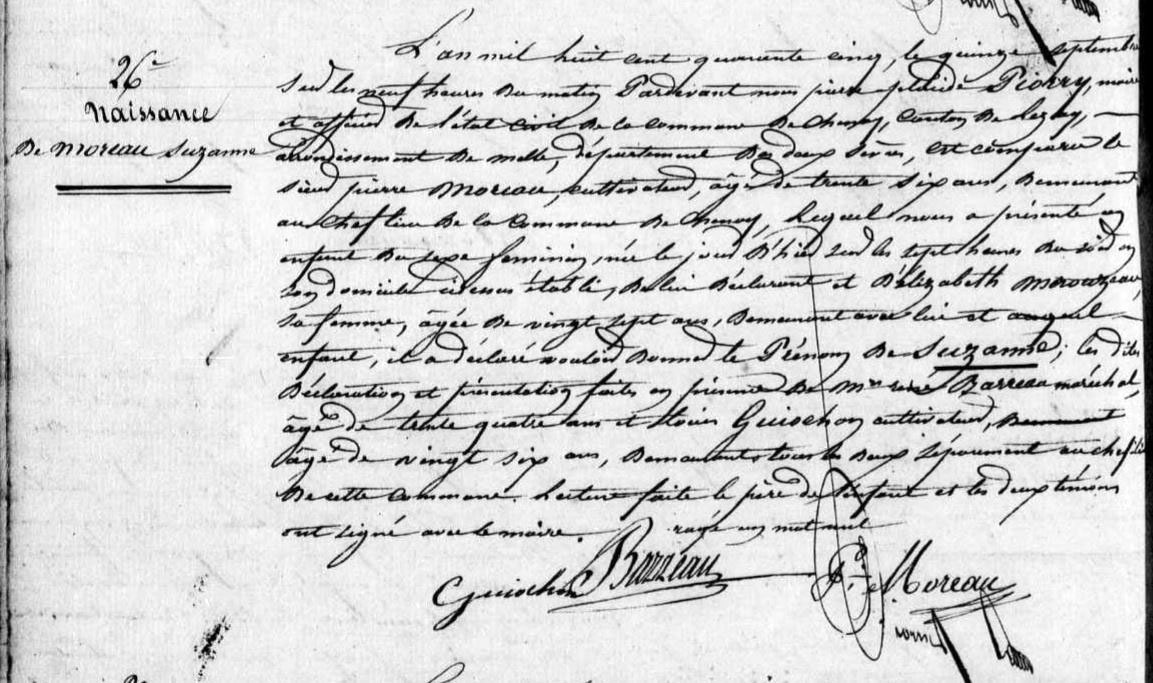 26e
Naissance
De Moreau Suzanne
L'an mil huit cent quarante cinq, le quinze septembre
sur les neuf heures du matin Pardevant nous pierre placide Piorry, maire
et officier de l'état civil de la commune de chenay, canton de Lezay,
arrondissement de melle, département des deux sèvres, est comparu le
sieur pierre Moreau, cultivateur, âgé de trente six ans, demeurant
au chef lieu de la commune de chenay, lequel nous a présenté un
enfant du sexe féminin, née le jour d'hier sur les sept heures du soir en
son domicile ci dessus établi, de lui déclarant et d'élizabeth
sa femme, âgée de vingt sept ans, demeurant avec lui et auquel
enfant, il a déclaré vouloir donner le Prénom de Suzanne; les dites
Déclaration et présentation faites en présence de Mrs rené Barreau maréchal,
âgé de trente quatre ans et Louis Guiochon cultivateur,
âgé de vingt six ans, demeurants tous deux séparément au chef lieu
de cette commune. Lecture faite le père de l'enfant et les deux témoins
ont signé avec le maire. rayé un mot nul
Guiochon Barreau Moreau